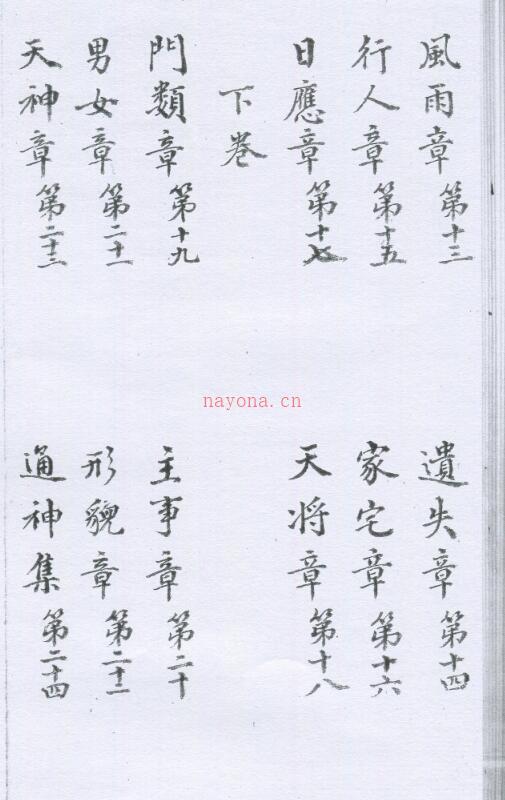 風雨章第十三 遺失章第十四
行人章第十五 家宅章第十六
日應章第十七 天将章第十八
下卷
門類章第十九 主事章第二十
男女章第二十一 形貌章第二十二
天神章第二十三 通神集第二十四
nayona.cn